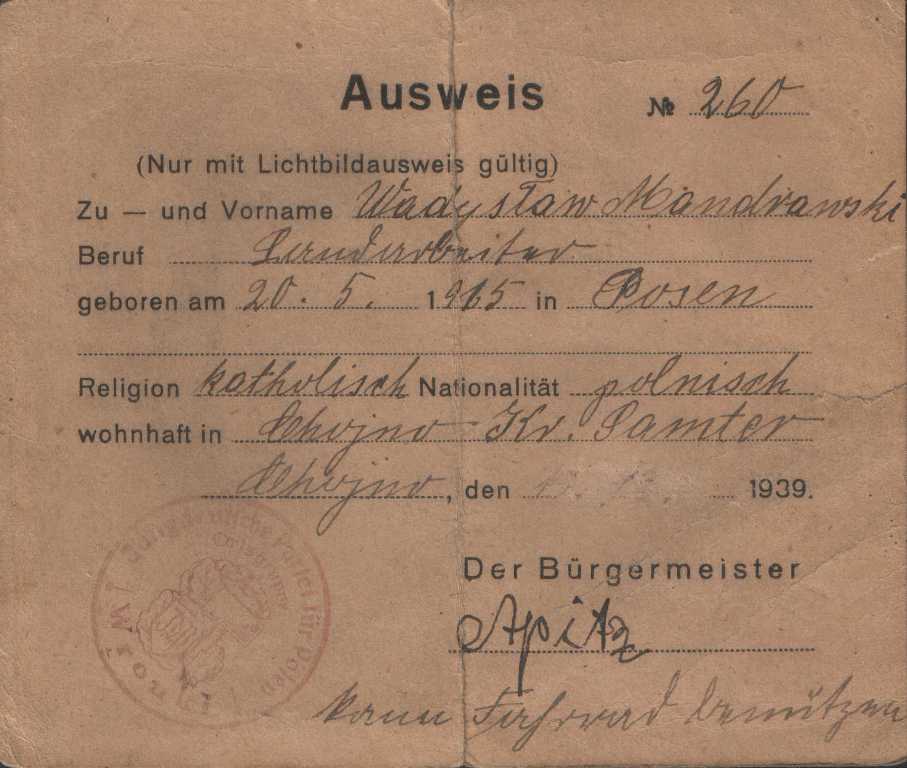 Ausweis
№ 260
(Nur mit Lichtbildausweis gültig)
Zu — und Vorname Wadysław Mandrawski
Beruf Landarbeiter
geboren am 20. 5. 1915 in Posen
Religion katholisch Nationalität polnisch
wohnhaft in Chojno Kr. Samter
Chojno, den 1939.
Der Bürgermeister
Apitz
kann Fahrrad benützen
Jungdeutsche Partei für Polen
Ortsgruppe
Wronki